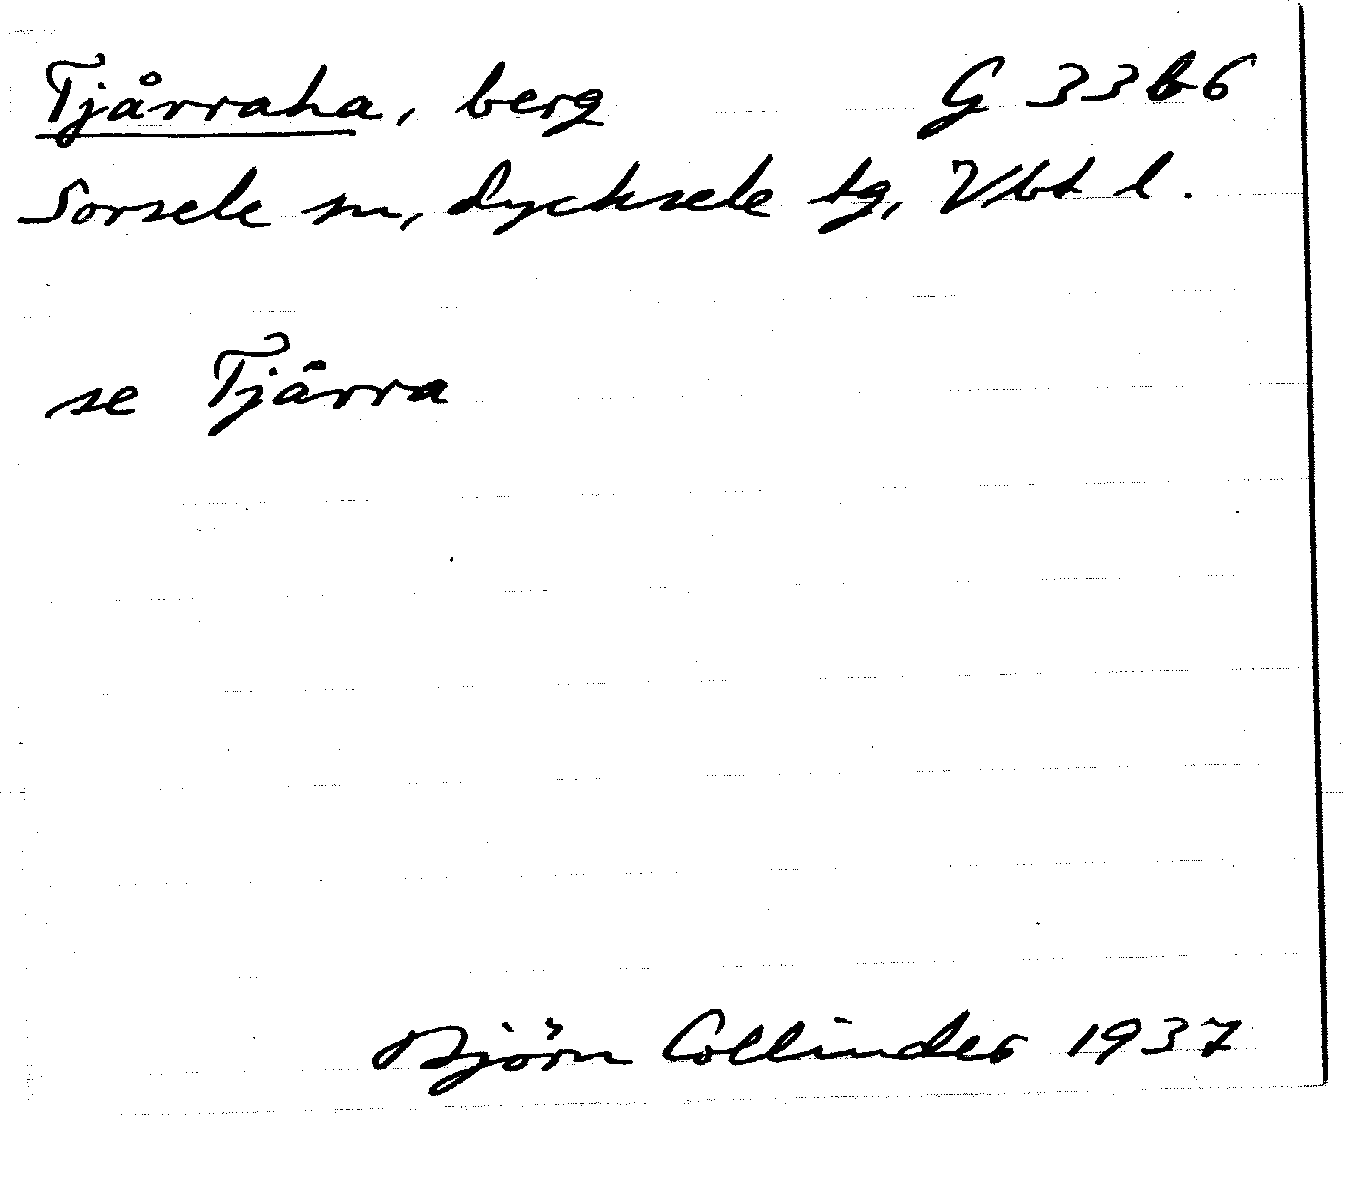 Tjårraha, berg G 33 b 6
Sorsele sn, Lycksele tg, Vbt l.
se Tjårra
Björn Collinder 1937